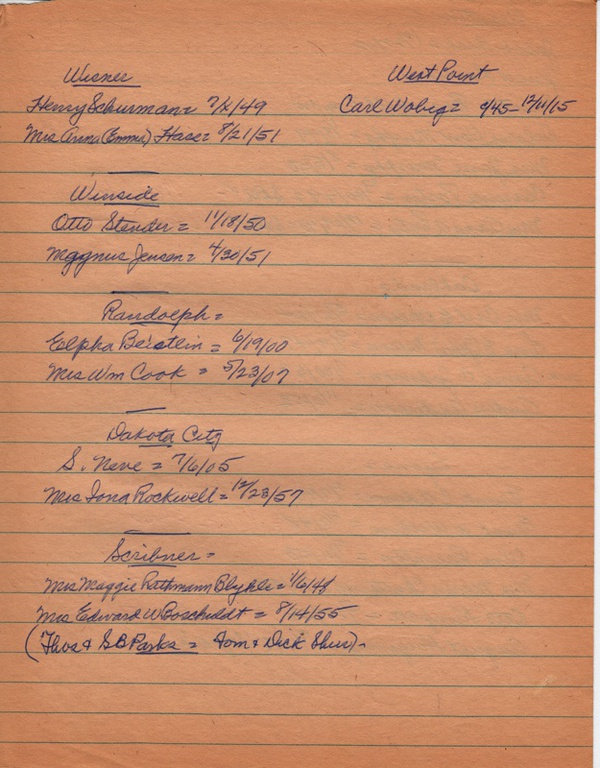 Wisner
Henry Schurman = 7/2/49
Mrs Anna (Emma) Hase = 8/21/51
Winside
Otto Stender = 11/18/50
Magnus Jensen = 4/30/51
Randolph =
Elpha Beistlin = 6/19/00
Mrs Wm Cook = 5/23/07
Dakota City
S. Neve = 7/6/05
Mrs Iona Rockwell = 12/23/57
Scribner =
Mrs Maggie Rathmann = 1/6/48
Mrs Edward W Boschuldt = 8/14/55
(Thos & SB Parks = Tom & Dick)-
West Point
Carl Wobig = 9/45-12/11/15